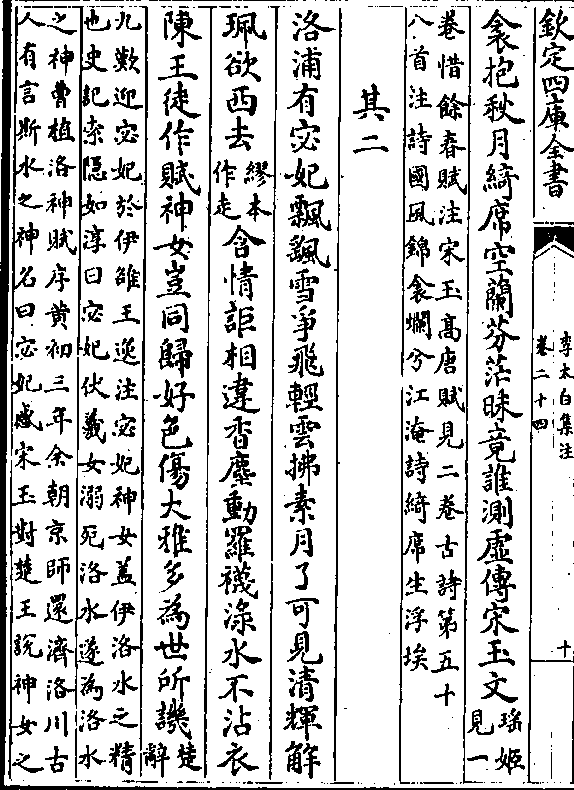 欽定四庫全書
李太白集注
卷二十四
十
衾抱秋月綺席空蘭芬茫昧竟誰測虛傳宋玉文瑤姬
見一
卷惜餘春賦注宋玉髙唐賦見二卷古詩第五十
八首注詩國風錦衾爛兮江淹詩綺席生浮埃
其二
洛浦有宓妃飄飖雪爭飛輕雲拂素月了可見清輝解
珮欲西去繆本
作走含情詎相違香塵動羅襪淥水不沾衣
陳王徒作賦神女豈同歸好色傷大雅多為世所譏楚
辭
九歎迎宓妃於伊雒王逸注宓妃神女蓋伊洛水之精
也史記索隠如淳曰宓妃伏羲女溺死洛水遂為洛水
之神曹植洛神賦序黄初三年余朝京師還濟洛川古
人有言斯水之神名曰宓妃感宋玉對楚王說神女之